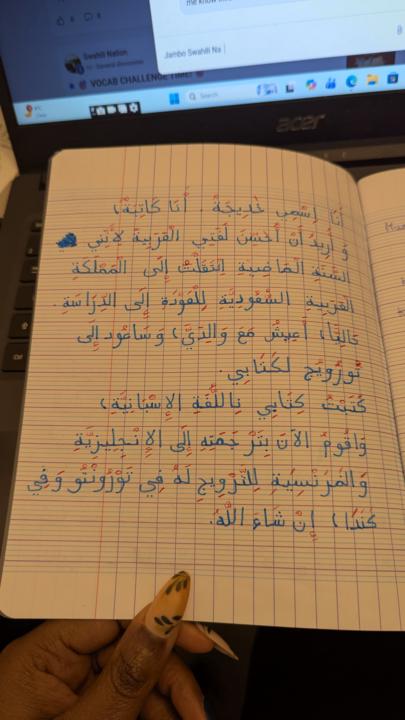 me know
8
8
Swahili Nation
VOCAB CHALLENGE TIME!
Jambo Swahili Na
Search
acer
أَنَا إِسْمِي خَدِيجَةُ. أَنَا كَاتِبَةٌ،
وَ أُرِيدُ أَنْ أُحْسِنَ لُغَتِي الْعَرَبِيةَ لِأَنَّنِي
السَّنَةِ الْمَاضِيةِ اِنْتَقَلْتُ إِلَى الْمَمْلَكَةِ
الْعَرَبِيةِ السَّعُودِيَّةِ لِلْعَوْدَةِ إِلَى الدِّرَاسَةِ.
حَالِيًا، أَعِيشُ مَعَ وَالِدَيَّ، وَ سَاعُود إِلى
تُورُويج لكَتَابِي.
كَتَبْتُ كِتَابِي بِاللُّغَةِ الإِسْبَانِيَّةِ،
وَاقُومُ الآنَ بِتَرْجَمَتِهِ إِلَى الإِنْجِلِيزِيَّةِ
وَالفَرَنْسِيةِ لِلتَّرْوِيجِ لَهُ فِي تَوْرُونْتُو وَفِي
كَنَدَا، إِنْ شَاءَ اللَّهُ.